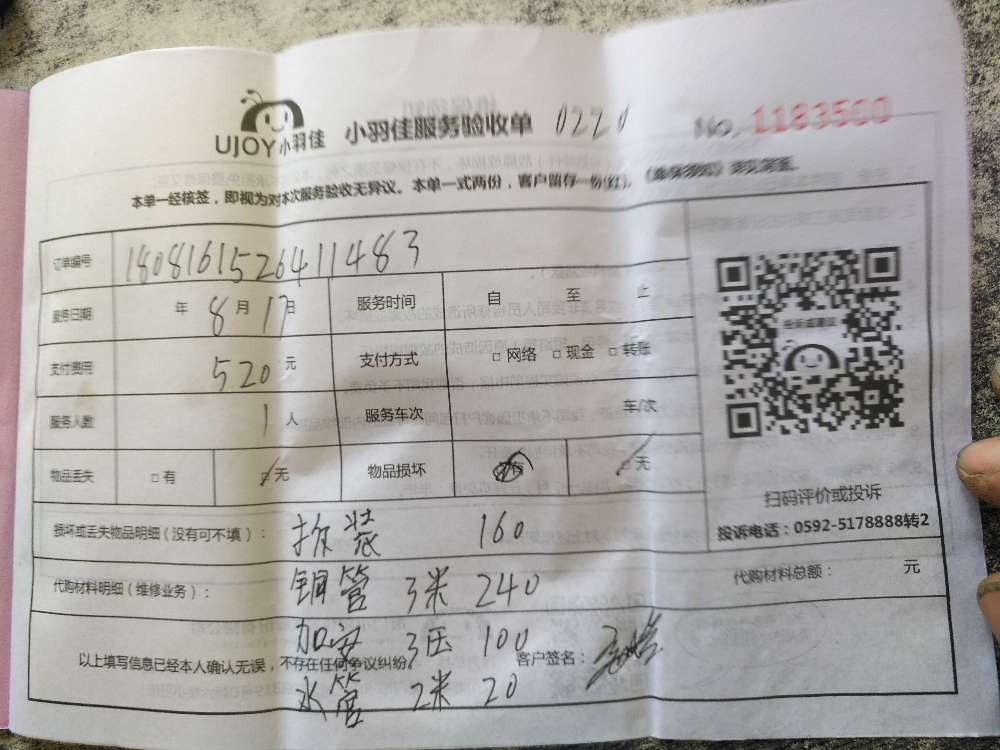 UJOY小羽佳 小羽佳服务验收单 0220 No. 1183500
本单一经核签，即视为对本次服务验收无异议。本单一式两份，客户留存一份(红)。《维保须知》详见背面。
订单编号 18081615264411483
服务日期 年 8月17日 服务时间 自 至 止
支付费用 520元 支付方式 □网络 □现金 □转账
服务人数 1人 服务车次 车/次
物品丢失 □有 □无 物品损坏 □有 □无
扫码评价或投诉
投诉电话：0592-5178888转2
损坏或丢失物品明细(没有可不填)： 拆装 160
代购材料明细(维修业务)： 铜管 3米 240 代购材料总额： 元
3压 100
以上填写信息已经本人确认无误，不存在任何争议纠纷 客户签名：
水管 2米 20